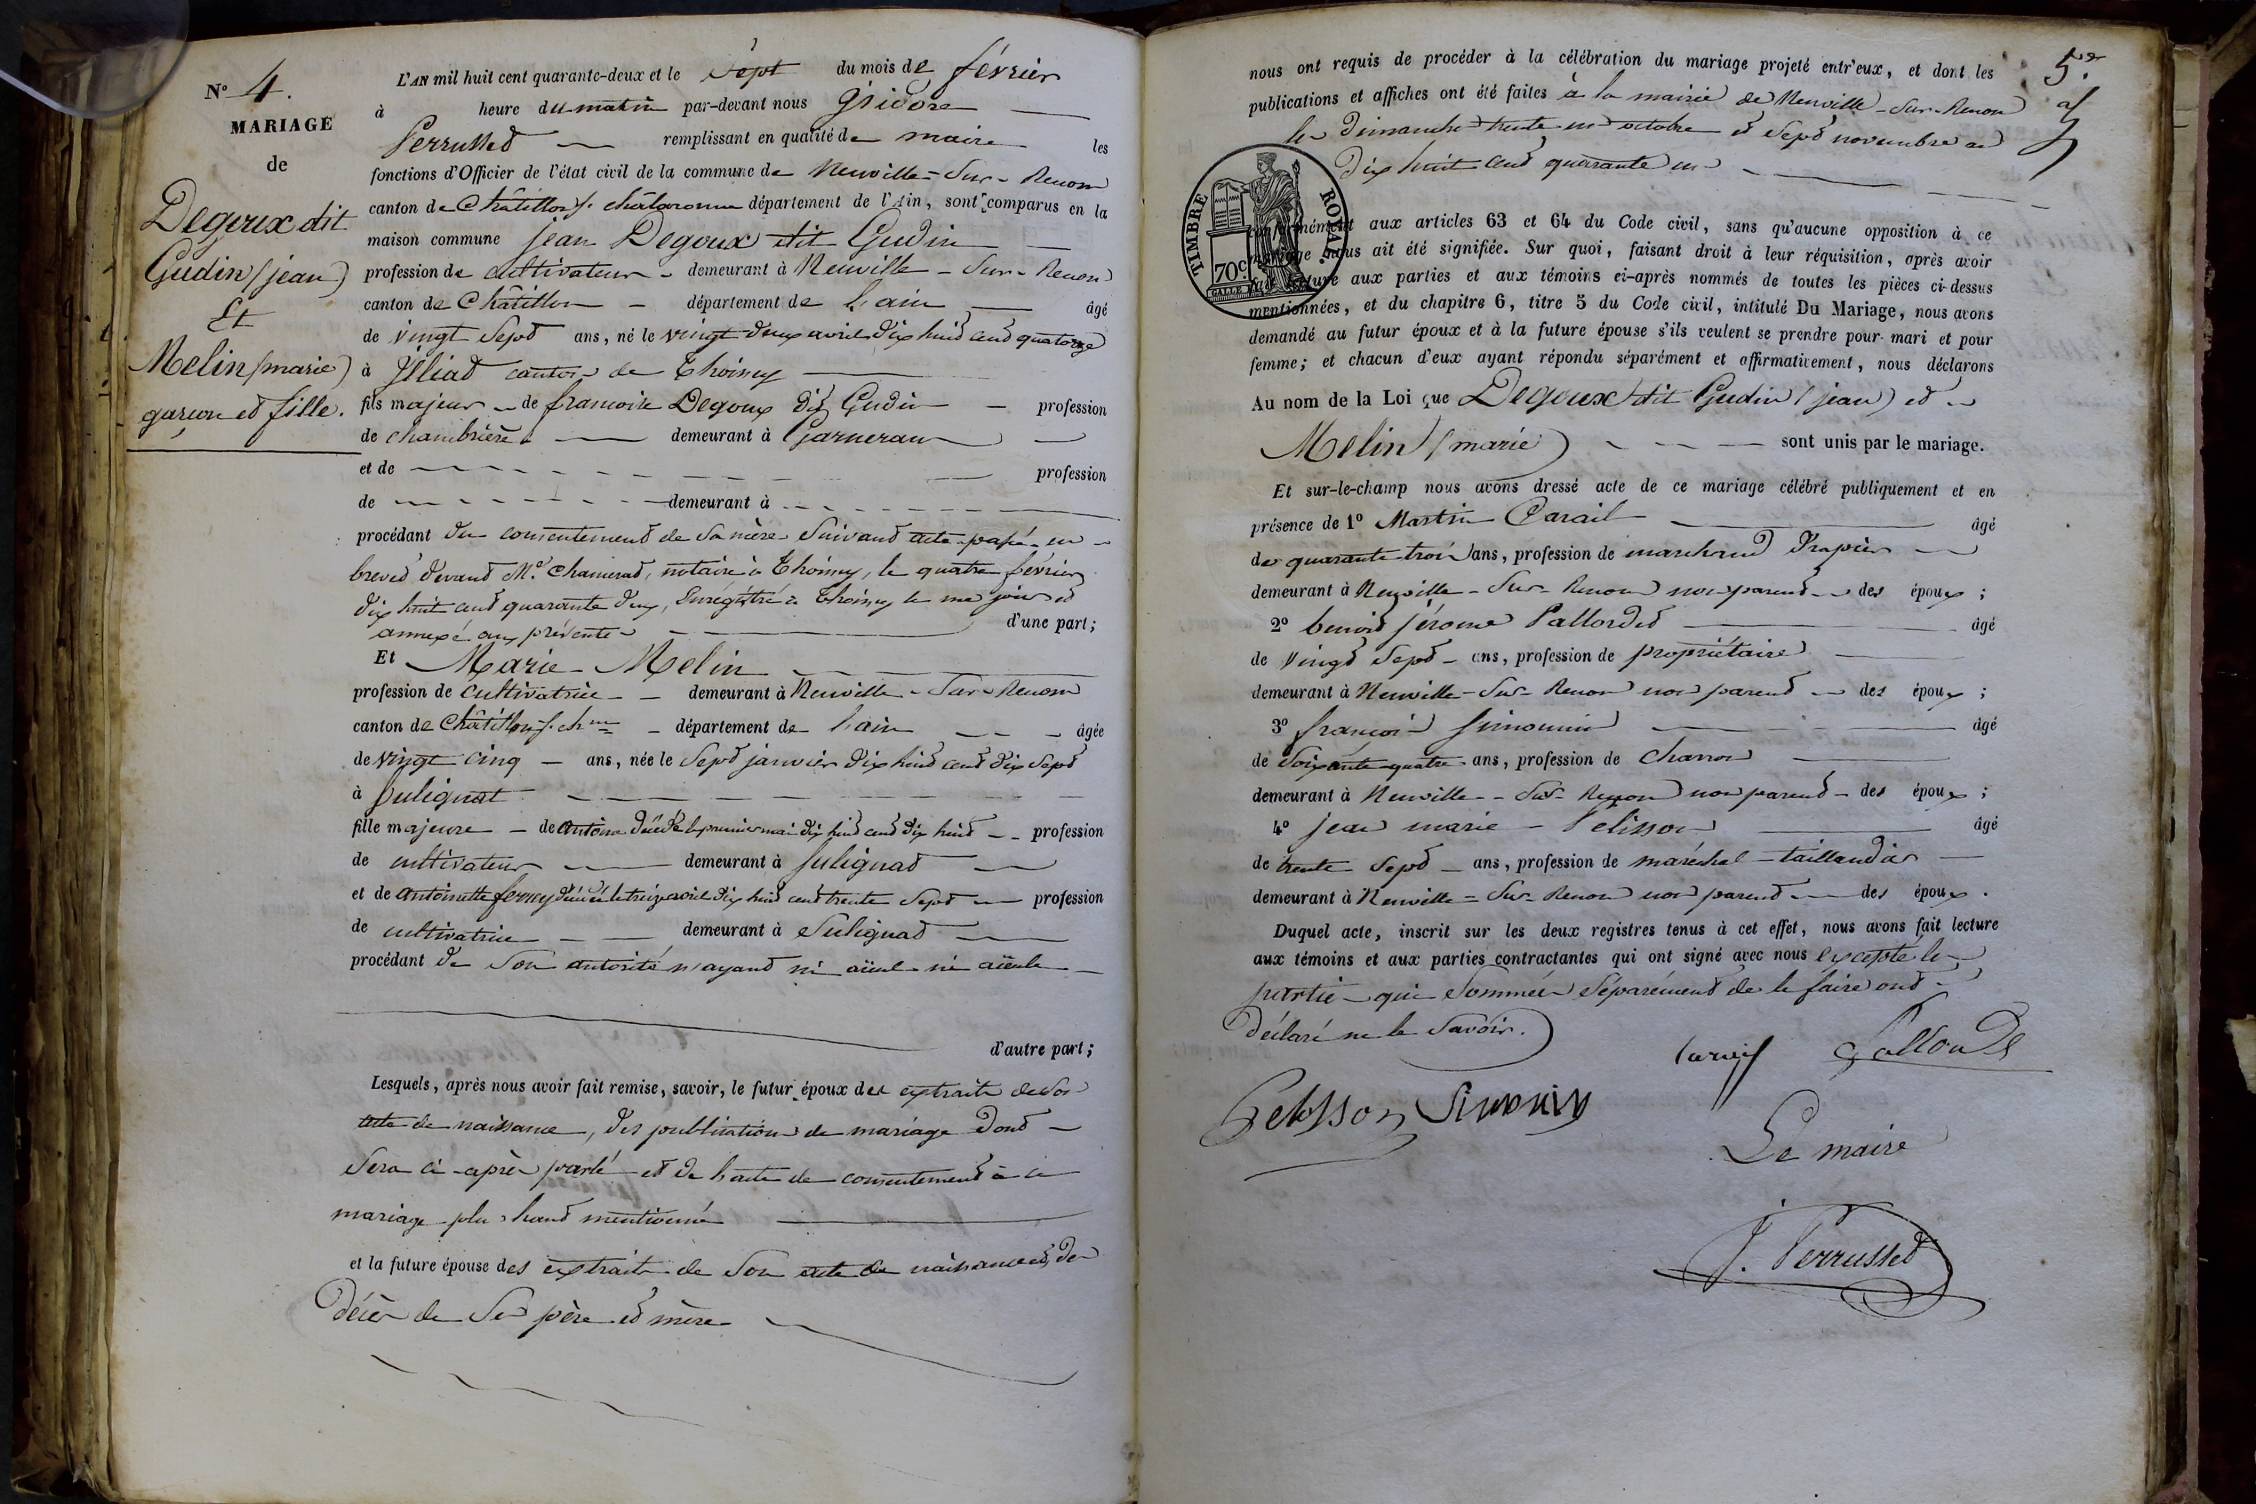 N° 4.
MARIAGE
de
Degoux dit
Gudin (jean)
Et
Melin (marie)
garçon et fille.
L'AN mil huit cent quarante-deux et le Sept du mois de février
à heure du matin par-devant nous Isidore
Perrusset remplissant en qualité de maire les
fonctions d'Officier de l'état civil de la commune de Neuville-Sur-Renom
canton de Châtillon s. chalaronne département de l'Ain, sont comparus en la
maison commune jean Degoux dit Gudin
profession de cultivateur demeurant à Neuville-Sur-Renom
canton de Châtillon département de l'ain âgé
de vingt Sept ans, né le vingt deux avril dix huit cent quatorze
à Illiat canton de Thoissey
fils majeur de francoise Degoux dit Gudin profession
de chambrière demeurant à Garnerans
et de profession
de demeurant à
procédant du consentement de Sa mère Suivant acte passé en
brevet devant Me. Chamerat, notaire à Thoissey, le quatre février
dix huit cent quarante deux, Enregistré à Thoissey le me jour et
annexé aux présentes d'une part;
Et Marie Melin
profession de cultivatrice demeurant à Neuville-Sur-Renom
canton de Châtillon s. chne département de l'ain âgée
de vingt cinq ans, née le Sept janvier dix huit cent dix Sept
à Sulignat
fille majeure de antoine décédé le premier mai dix huit cent dix huit profession
de cultivateur demeurant à Sulignat
et de antoinette ferney décédée le treize avril dix huit cent trente Sept profession
de cultivatrice demeurant à Sulignat
procédant de Son autorité n'ayant ni aïeul ni aïeule
d'autre part;
Lesquels, après nous avoir fait remise, savoir, le futur époux des extraits de Son
acte de naissance, des publications de mariage dont
Sera ci-après parlé et de l'acte de consentement à ce
mariage plus haut mentionné
et la future épouse des extraits de Son acte de naissance et des
décès de Ses père et mère
5e
nous ont requis de procéder à la célébration du mariage projeté entr'eux, et dont les
publications et affiches ont été faites à la mairie de Neuville-Sur-Renom
les dimanches trente un octobre et Sept novembre an
dix huit cent quarante un
TIMBRE ROYAL.
70c
conformément aux articles 63 et 64 du Code civil, sans qu'aucune opposition à ce
mariage nous ait été signifiée. Sur quoi, faisant droit à leur réquisition, après avoir
fait lecture aux parties et aux témoins ci-après nommés de toutes les pièces ci-dessus
mentionnées, et du chapitre 6, titre 5 du Code civil, intitulé Du Mariage, nous avons
demandé au futur époux et à la future épouse s'ils veulent se prendre pour mari et pour
femme; et chacun d'eux ayant répondu séparément et affirmativement, nous déclarons
Au nom de la Loi que Degoux dit Gudin (jean) et
Melin (marie) sont unis par le mariage.
Et sur-le-champ nous avons dressé acte de ce mariage célébré publiquement et en
présence de 1° Martin Carail âgé
de quarante trois ans, profession de marchand drapier
demeurant à Neuville-Sur-Renom non parent des époux;
2° benoit jérome Pallordet âgé
de vingt Sept ans, profession de propriétaire
demeurant à Neuville-Sur-Renom non parent des époux;
3° françois Simonin âgé
de Soixante quatre ans, profession de charron
demeurant à Neuville-Sur-Renom non parent des époux;
4° jean marie Pelisson âgé
de trente Sept ans, profession de maréchal-taillandier
demeurant à Neuville-Sur-Renom non parent des époux.
Duquel acte, inscrit sur les deux registres tenus à cet effet, nous avons fait lecture
aux témoins et aux parties contractantes qui ont signé avec nous excepté les
parties qui Sommées Séparément de le faire ont
déclaré ne le Savoir.
Pelisson Simonin
Le maire
J. Perrusset